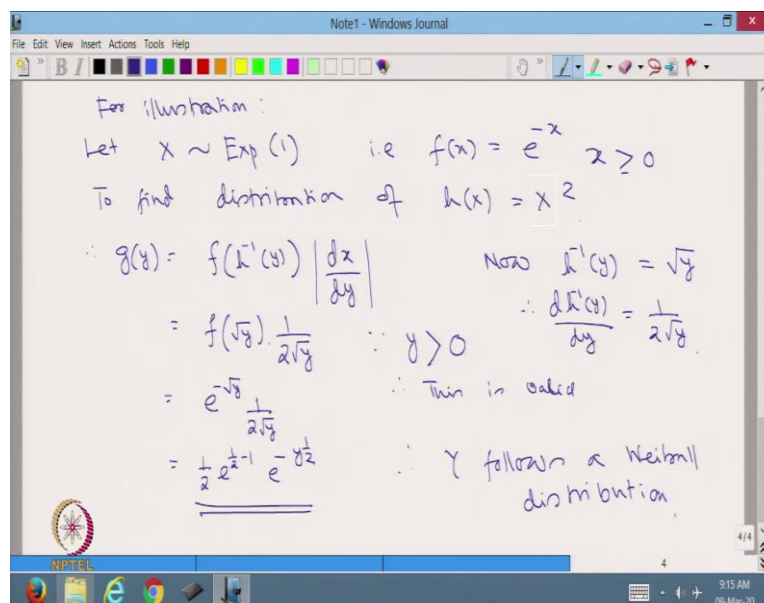 Note1 - Windows Journal
File Edit View Insert Actions Tools Help
B I
For illustration :
Let X ~ Exp (1) i.e f(x) = e^{-x} x ≥ 0
To find distribution of h(x) = X^2
∴ g(y) = f(h^{-1}(y)) |dx/dy| Now h^{-1}(y) = √y
= f(√y) . 1/(2√y) ∵ y > 0 ∴ dh^{-1}(y)/dy = 1/(2√y)
= e^{-√y} 1/(2√y) ∴ This is valid
= 1/2 e^{1/2 - 1} e^{-y^{1/2}} ∴ Y follows a Weibull
distribution.
4/4
NPTEL
4
9:15 AM
09-Mar-20